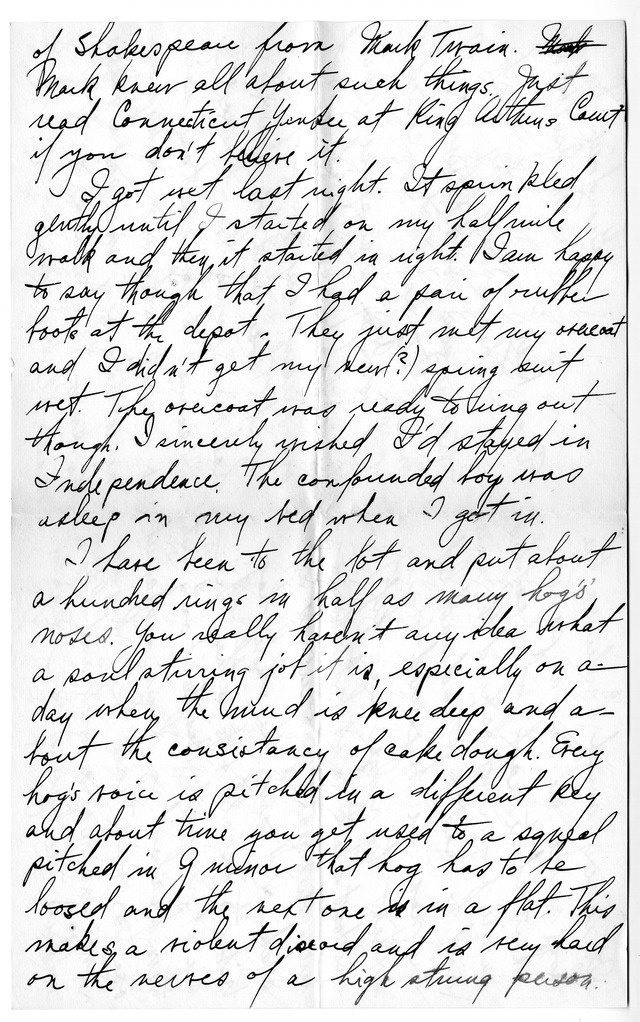 of Shakespeare from Mark Twain.
Mark knew all about such things. Just
read Connecticut Yankee at King Arthurs Court
if you don't believe it.
I got wet last night. It sprinkled
gently until I started on my half mile
walk and then it started in right. I am happy
to say though that I had a pair of rubber
boots at the depot. They just met my overcoat
and I didn't get my new(?) spring suit
wet. The overcoat was ready to ring out
though. I sincerely wished I'd stayed in
Independence. The confounded boy was
asleep in my bed when I got in.
I have been to the lot and put about
a hundred rings in half as many hog's
noses. You really haven't any idea what
a soul stirring job it is, especially on a
day when the mud is knee deep and a-
bout the consistancy of cake dough. Every
hog's voice is pitched in a different key
and about time you get used to a squeal
pitched in G minor that hog has to be
loosed and the next one is in a flat. This
makes a violent discord and is very hard
on the nerves of a high strung person.